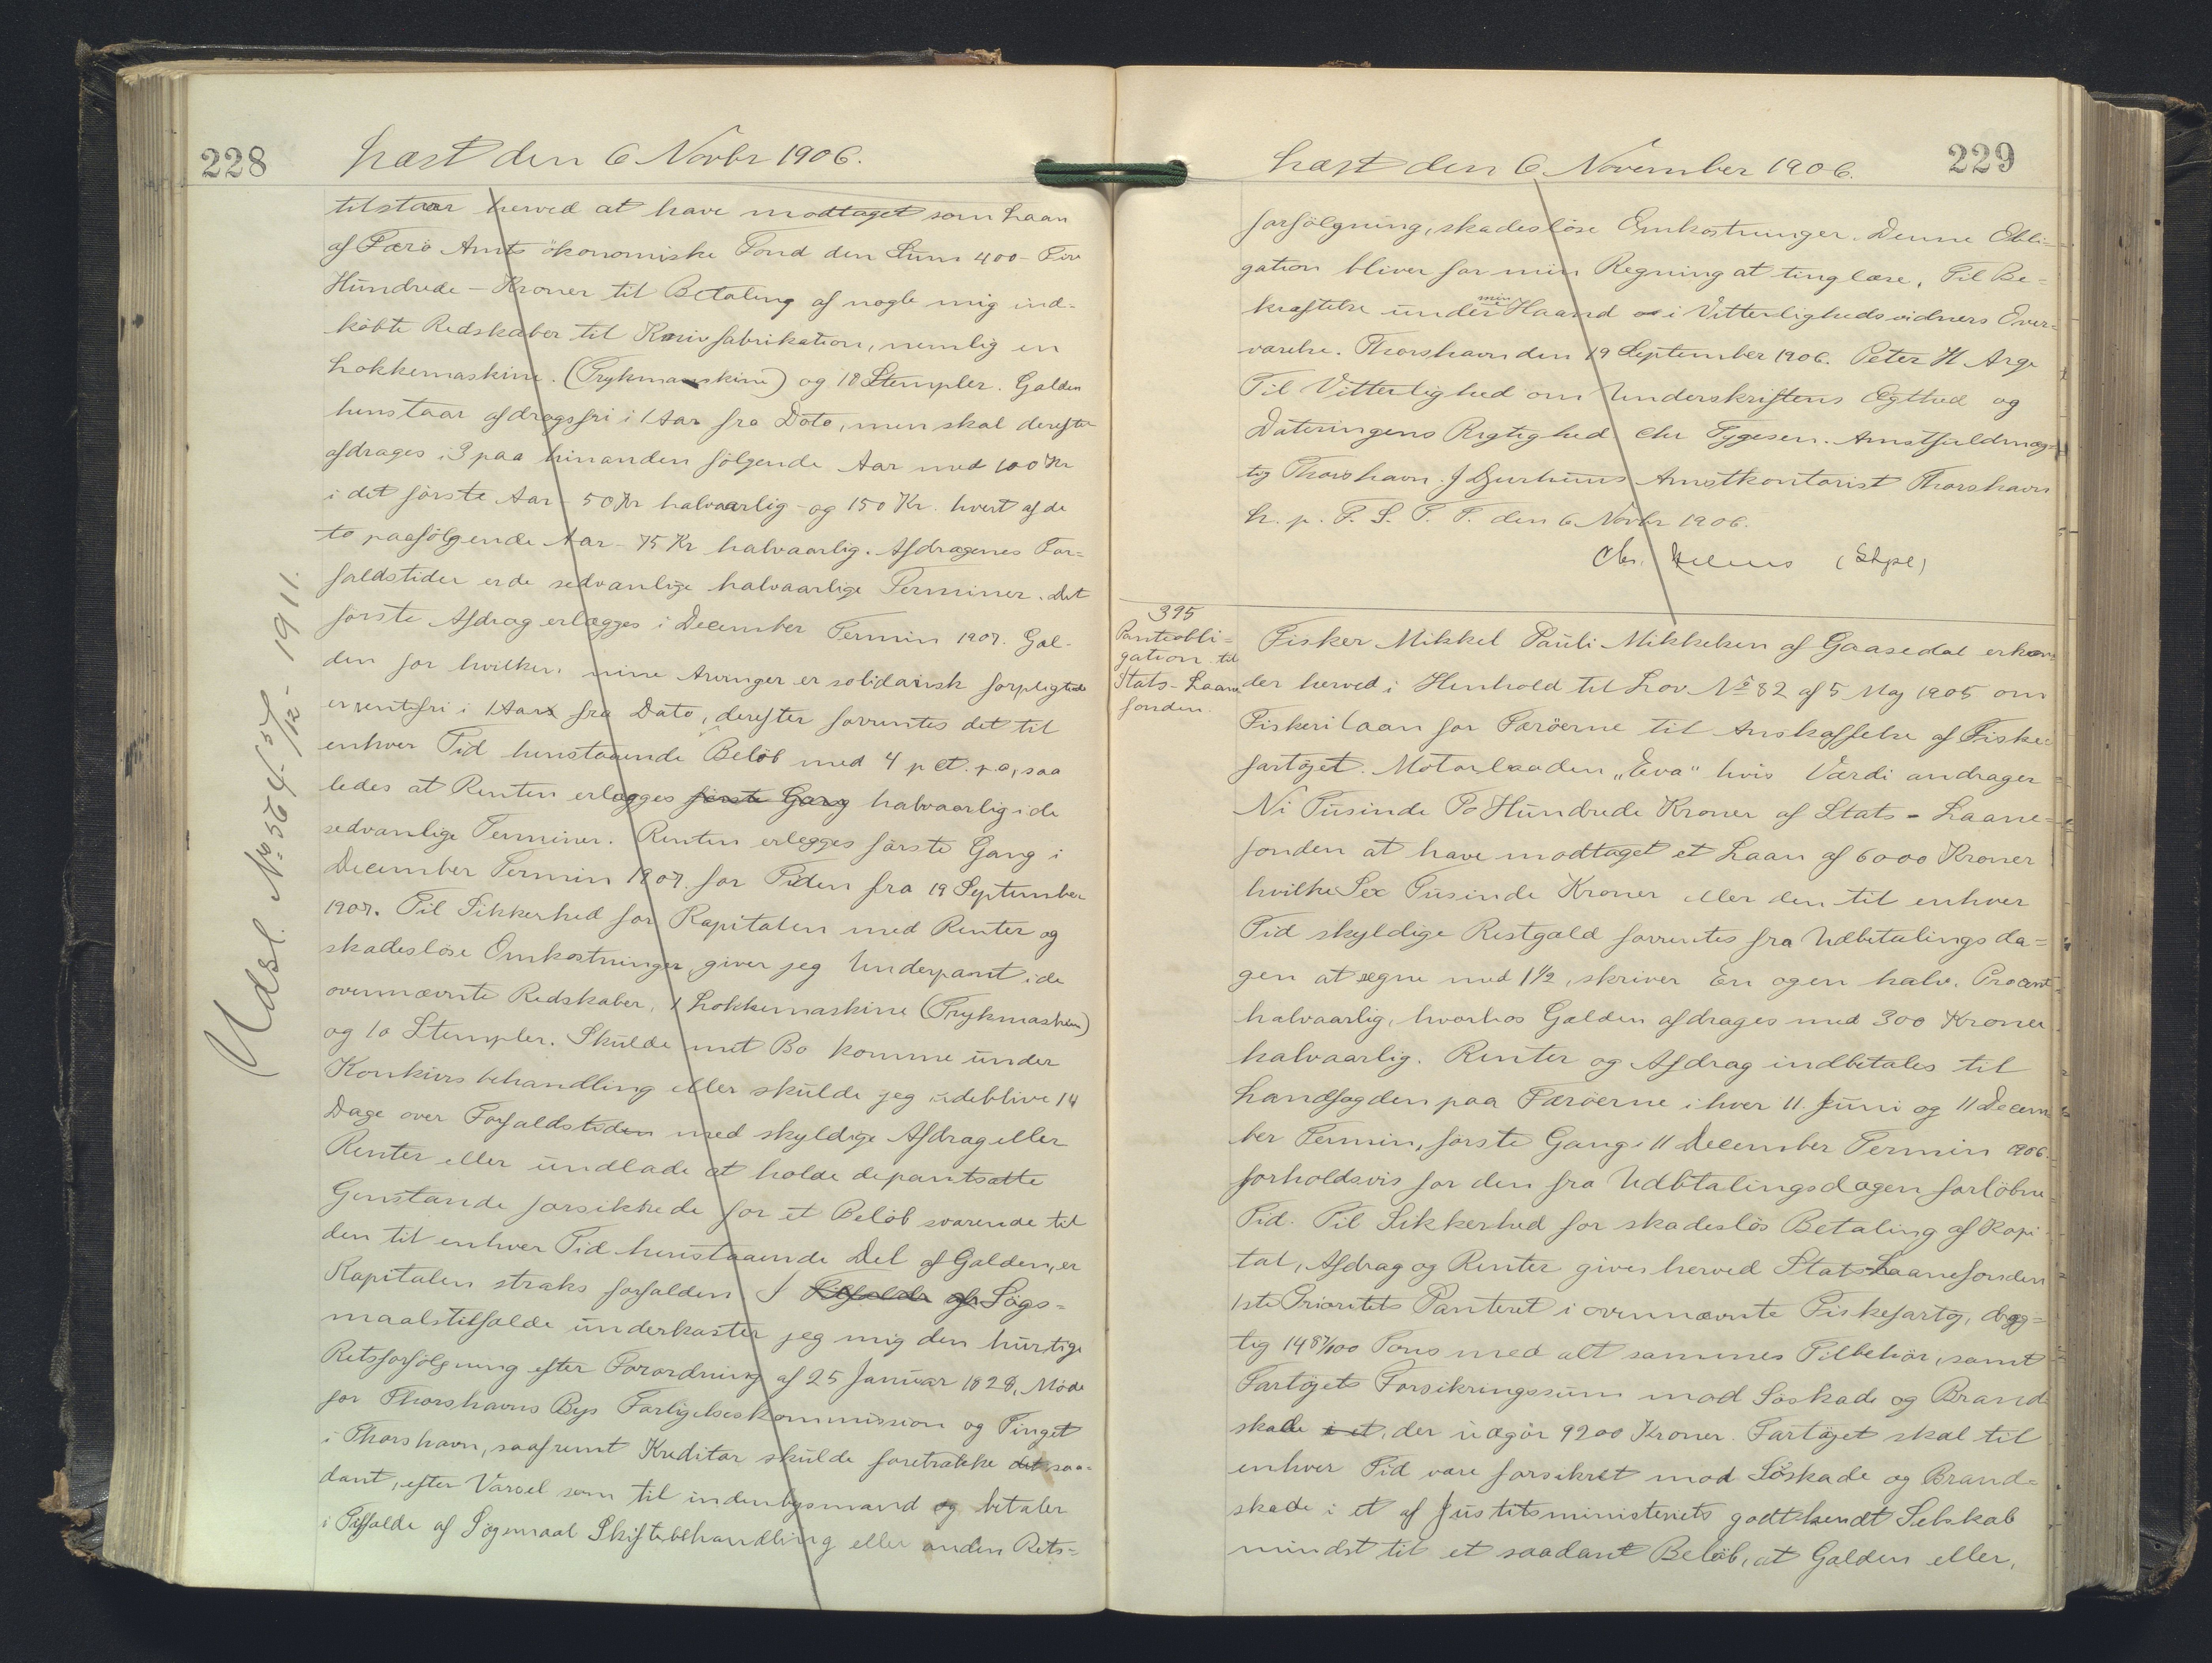 228
Læst den 6 Novbr 1906.
tilstaar herved at have modtaget som Laan
af Færö Amts ökonomiske Fond den Sum 400 - Fire
Hundrede - Kroner til Betaling af nogle mig ind-
köbte Redskaber til Knivfabrikation, nemlig en
Lokkemaskine. (Trykmaskine) og 10 Stempler. Gælden
henstaar afdragsfri i 1 Aar fra Dato, men skal derefter
afdrages i 3 paa hinanden fölgende Aar med 100 Kr
i det förste Aar - 50 Kr halvaarlig - og 150 Kr. hvert af de
to paafölgende Aar - 75 Kr halvaarlig. Afdragenes For-
faldstider er de sedvanlige halvaarlige Terminer. Det
förste Afdrag erlægges i December Termin 1907. Gæl-
den for hvilken mine Arvinger er solidarisk forpligtede
er rentfri i 1 Aar fra Dato, derefter forrentes det til
enhver Tid henstaaende Belöb med 4 p Ct. p.a, saa
ledes at Renten erlægges förste Gang halvaarlig i de
sedvanlige Terminer. Renten erlegges förste Gang i
December Termin 1907. for Tiden fra 19 September
1907. Til Sikkerhed for Kapitalen med Renter og
skadeslöse Omkostninger giver jeg Underpant i de
ovennævnte Redskaber, 1 Lokkemaskine (Trykmaskine)
og 10 Stempler. Skulde mit Bo komme under
Konkursbehandling eller skulde jeg udeblive 14
Dage over Forfaldstiden med skyldige Afdrag eller
Renter eller undlade at holde de pantsatte
Genstande forsikkede for et Belöb svarende til
den til enhver Tid henstaaende Del af Gælden, er
Kapitalen straks forfalden I Tilfælde af Sögs-
maalstilfælde underkaster jeg mig den hurtige
Retsforfölgning efter Forordning af 25 Januar 1828, Möde
for Thorshavns Bys Forligelseskommission og Tinget
i Thorshavn, saafremt Kreditor skulde foretrække det saa-
dant, efter Varsel som til indenbysmand og betaler
i Tilfælde af Sögsmaal Skiftebehandling eller anden Rets-
Udsl. No 564 - 5/12 - 1911.
229
Læst den 6 November 1906.
forfölgning, skadeslöse Omkostninger. Denne Obli-
gation bliver for min Regning at tinglæse, Til Be-
kræftelse under min Haand i Vitterlighedsvidners Over-
værelse. Thorshavn den 19 September 1906. Peter H Arge
Til Vitterlighed om Underskriftens Ægthed og
Dateringens Rigtighed Chr Tygesen. Amstfuldmæg-
tig Thorshavn. J Djurhuus Amstkontorist Thorshavn
L. p. F. S. T. T. den 6 Novbr 1906.
Chr. (Stpl)
395
Panteobli-
gation til
Stats-Laane
fonden.
Fisker Mikkel Pauli Mikkelsen af Gaasedal erkæn-
der herved i Henhold til Lov No 82 af 5 Maj 1905 om
Fiskerilaan for Færöerne til Anskaffelse af Fiske-
fartöjet. Motorbaaden „Eva" hvis Værdi andrager
Ni Tusinde To Hundrede Kroner af Stats - Laane-
fonden at have modtaget et Laan af 6000 Kroner
hvilke Sex Tusinde Kroner eller den til enhver
Tid skyldige Restgæld forrentes fra Udbetalingsda-
gen at regne med 1 1/2, skriver En og en halv, Procent
halvaarlig, hvorhos Gælden afdrages med 300 Kroner
halvaarlig. Renter og Afdrag indbetales til
Landfogden paa Færöerne i hver 11. Juni og 11 Decem
ber Termin, förste Gang i 11 December Termin 1906.
forholdsvis for den fra Udbetalingsdagen forlöbne
Tid. Til Sikkerhed for skadeslös Betaling af Kapi
tal, Afdrag og Renter gives herved Stats-Laanefonden
1ste Prioritets Panteret i ovennævnte Fiskefartöj, dræg-
tig 14 87/100 Tons med alt sammes Tilbehör, samt
Fartöjets Forsikringssum mod Söskade og Brand
skade i et, der udgör 9200 Kroner. Fartöjet skal til
enhver Tid være forsikret mod Söskade og Brand-
skade i et af Justitsministeriets godtkendt Selskab
mindst til et saadant Belöb, at Gælden eller,